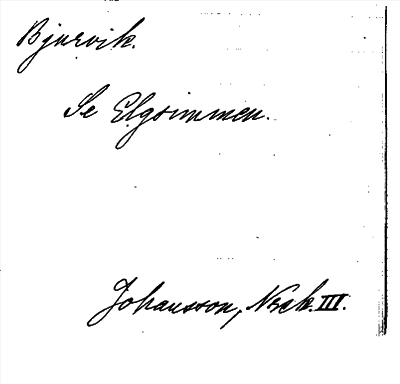 Bjurvik.
Se Elgsimmen.
Johansson, Nsck. III.